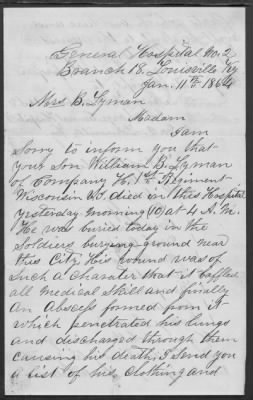 General Hospital No. 2
Branch 18. Louisville Ky
Jan. 11th 1864
Mrs B. Lyman
Madam
I am
Sorry to inform you that
your Son William B. Lyman
of Company H. 1st Regiment
Wisconsin Vo. died in this Hospital
yesterday morning (10) at 4 A.M.
He was buried today in the
Soldiers burying ground near
this City. His wound was of
Such a Charater that it baffled
all medical Skill and finally
An Abscess formed from it
which penetrated his lungs
and discharged through them
causing his death, I Send you
a list of his Clothing and